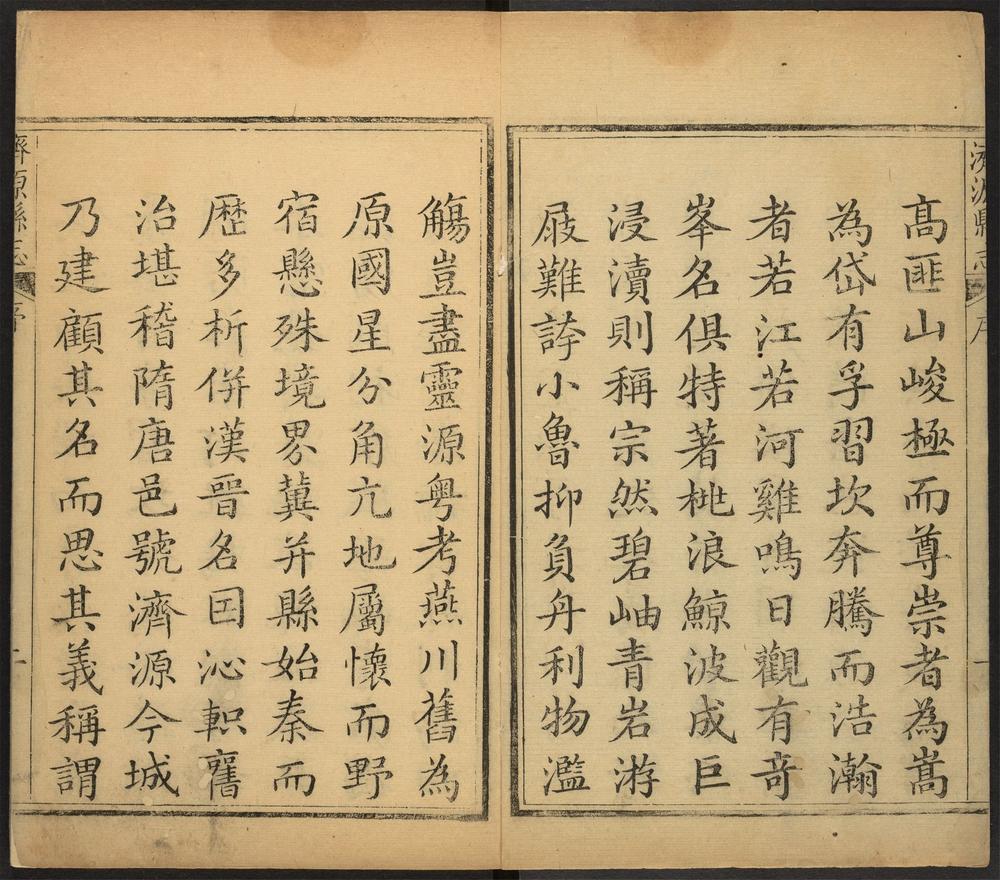 濟源縣志
高匪山峻極而尊崇者為嵩
為岱有孚習坎奔騰而浩瀚
者若江若河雞鳴日觀有奇
峯名俱特著桃浪鯨波成巨
浸瀆則稱宗然碧岫青岩游
屐難誇小魯抑負舟利物濫
觴豈盡靈源粤考燕川舊為
原國星分角亢地屬懷而野
宿懸殊境界冀并縣始秦而
歷多析併漢晉名因沁軹舊
治堪稽隋唐邑號濟源今城
乃建顧其名而思其義稱謂
濟源縣志 序 二